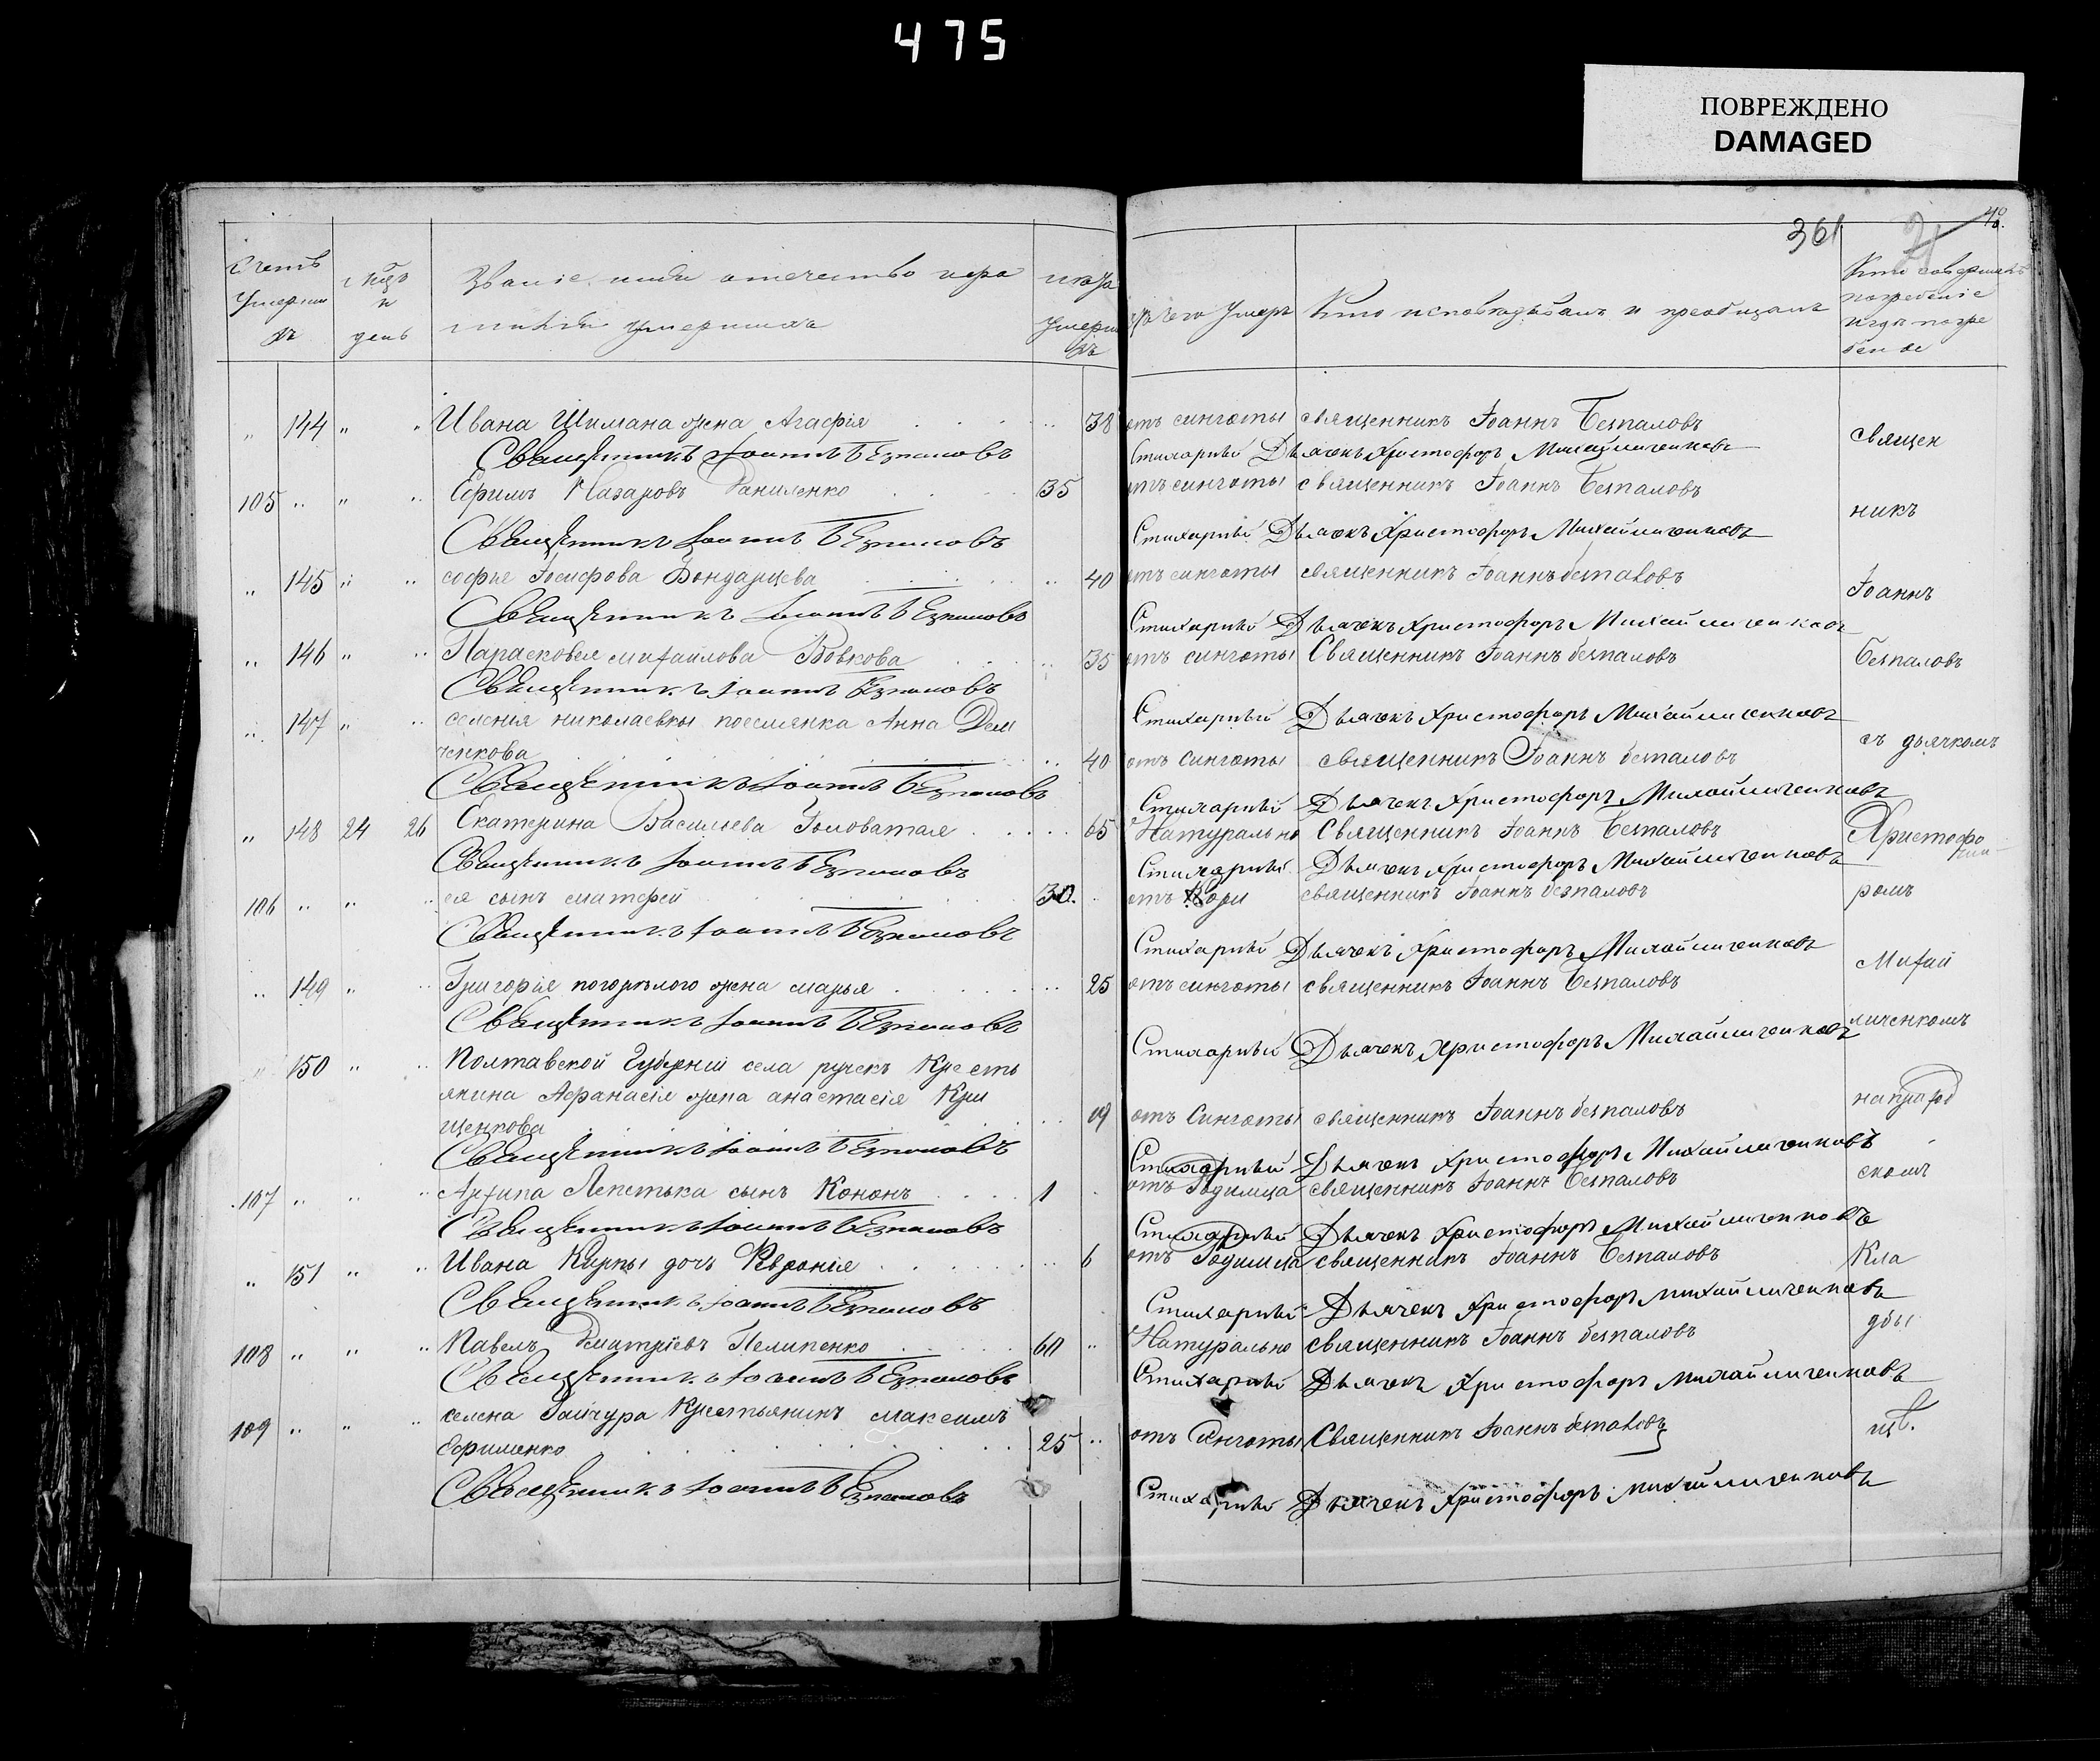 475
ПОВРЕЖДЕНО
DAMAGED
361
Счетъ умерши хъ
день
Званіе имя отечество и умершихъ
чего умеръ
Кто исповѣдывалъ и пріобщалъ
Кто совершалъ погребеніе
144 " " Ивана Шимана жена Агафія 38
Священникъ Іоаннъ Безпаловъ
105 " " " Ефимъ Назаровъ Даниленко 35
Священникъ Іоаннъ Безпаловъ
" 145 " " софья Іосифова Бондарцева 40
Священникъ Іоаннъ Безпаловъ
" 146 " " Парасковея михайлова Вовкова 35
Священникъ Іоаннъ Безпаловъ
" 147 " " селенія николаевки поселянка Анна Дем
ченкова 40
Священникъ Іоаннъ Безпаловъ
" 148 24 26 Екатерина Васильева Головатая 65
Священникъ Іоаннъ Безпаловъ
106 " " " ея сынъ матфей 30
Священникъ Іоаннъ Безпаловъ
" 149 " " Григорія погорѣлого жена марья 25
Священникъ Іоаннъ Безпаловъ
" 150 " " Полтавской Губерніи села ручекъ Кресть
янина Афанасія жена анастасія Кри
щенкова 19
Священникъ Іоаннъ Безпаловъ
107 " " " Архипа Лепетька сынъ Кононъ 1
Священникъ Іоаннъ Безпаловъ
" 151 " " Ивана Кирпы дочь Февронія 6
Священникъ Іоаннъ Безпаловъ
108 " " " Павелъ Дмитріевъ Пелипенко 60
Священникъ Іоаннъ Безпаловъ
109 " " " Крестьянинъ максимъ
Ефименко 25
Священникъ Іоаннъ Безпаловъ
отъ сухоты священникъ Іоаннъ Безпаловъ
Стихарный Дьячекъ Христофоръ Михайличенковъ
отъ сухоты священникъ Іоаннъ Безпаловъ
Стихарный Дьячекъ Христофоръ Михайличенковъ
отъ сухоты священникъ Іоаннъ безпаловъ
Стихарный Дьячекъ Христофоръ Михайличенковъ
отъ сухоты Священникъ Іоаннъ безпаловъ
Стихарный Дьячекъ Христофоръ Михайличенковъ
отъ сухоты священникъ Іоаннъ безпаловъ
Стихарный Дьячекъ Христофоръ Михайличенковъ
Натурально Священникъ Іоаннъ Безпаловъ
Стихарный Дьячекъ Христофоръ Михайличенковъ
отъ священникъ Іоаннъ безпаловъ
Стихарный Дьячекъ Христофоръ Михайличенковъ
отъ сухоты священникъ Іоаннъ Безпаловъ
Стихарный Дьячекъ Христофоръ Михайличенковъ
отъ сухоты священникъ Іоаннъ безпаловъ
Стихарный Дьячекъ Христофоръ Михайличенковъ
отъ Родимца священникъ Іоаннъ Безпаловъ
Стихарный Дьячекъ Христофоръ Михайличенковъ
отъ Родимца священникъ Іоаннъ Безпаловъ
Стихарный Дьячекъ Христофоръ Михайличенковъ
Натурально священникъ Іоаннъ безпаловъ
Стихарный Дьячекъ Христофоръ Михайличенковъ
отъ сухоты Священникъ Іоаннъ безпаловъ
Стихарный Дьячекъ Христофоръ Михайличенковъ
священ
никъ
Іоаннъ
Безпаловъ
съ дьячкомъ
Христофо
ромъ
Михай
личенкомъ
на приход
скомъ
Кла
дби
щѣ.